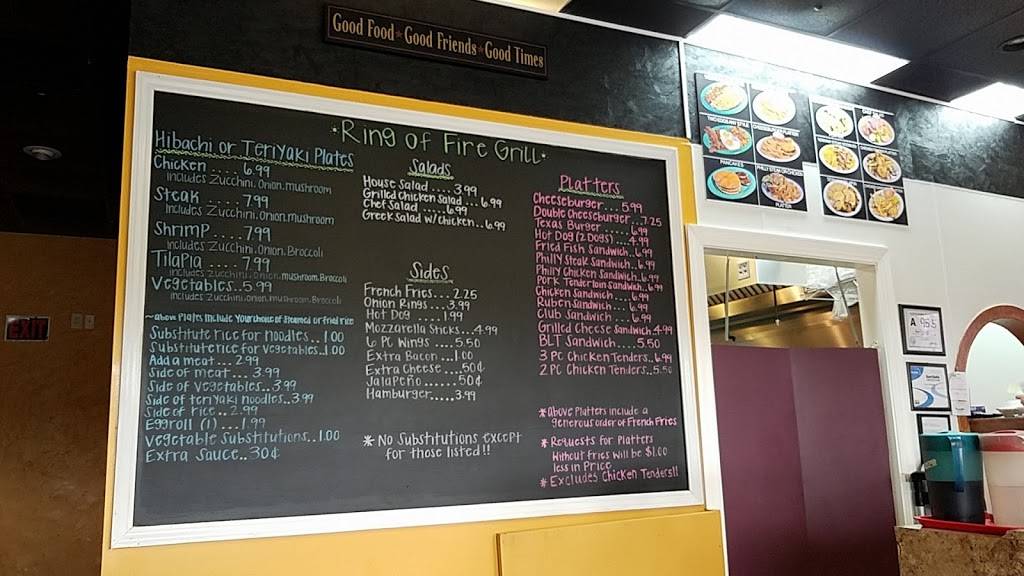 Good Food Good Friends Good Times
Ring of Fire Grill
Hibachi or Teriyaki Plates
Chicken .... 6.99
Includes Zucchini, Onion, mushroom
Steak .... 7.99
Includes Zucchini, Onion, mushroom
Shrimp .... 7.99
Includes Zucchini, Onion, Broccoli
Tilapia .... 7.99
includes Zucchini, Onion, mushroom, Broccoli
Vegetables .. 5.99
includes Zucchini, Onion, mushroom, Broccoli
~above Plates include your choice of Steamed or fried rice
Substitute rice for noodles .. 1.00
Substitute rice for vegetables .. 1.00
Add a meat .... 2.99
Side of meat ... 3.99
Side of vegetables .. 3.99
Side of teriyaki noodles .. 3.99
Side of rice .. 2.99
Eggroll (1) ... 1.99
Vegetable Substitutions .. 1.00
Extra Sauce .. 30¢
Salads
House Salad .... 3.99
Grilled Chicken Salad ... 6.99
Chef Salad .... 6.99
Greek Salad w/ Chicken .. 6.99
Sides
French Fries ... 2.25
Onion Rings ... 3.99
Hot Dog .... 1.99
Mozzarella Sticks ... 4.99
6 PC Wings .... 5.50
Extra Bacon .. 1.00
Extra Cheese .... 50¢
Jalapeño ..... 50¢
Hamburger .... 3.99
* No Substitutions except
for those listed!!
Platters
Cheeseburger .... 5.99
Double Cheeseburger .. 7.25
Texas Burger .... 6.99
Hot Dog (2 Dogs) ... 4.99
Fried Fish Sandwich .. 6.99
Philly Steak Sandwich .. 6.99
Philly Chicken Sandwich .. 6.99
Pork Tenderloin Sandwich .. 6.99
Chicken Sandwich .... 6.99
Ruben Sandwich .... 6.99
Club Sandwich .... 6.99
Grilled Cheese Sandwich .. 4.99
BLT Sandwich ..... 5.50
3 PC Chicken Tenders .. 6.99
2 PC Chicken Tenders .. 5.50
* above Platters include a
generous order of French Fries
* Requests for Platters
Without Fries will be $1.00
less in Price
* Excludes Chicken Tenders!!
PANCAKES
PLATTER
A 95.5
EXIT